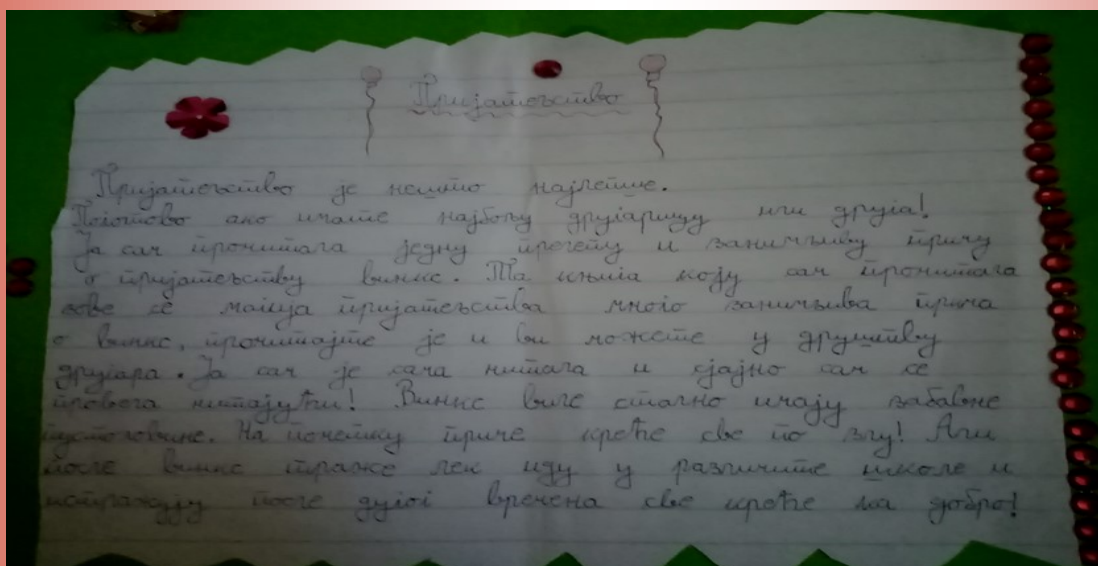 Пријатељство
Пријатељство је нешто најлепше.
Поготово ако имате најбољу другарицу или друга!
Ја сам прочитала једну прелепу и занимљиву причу
о пријатељству винкс. Та књига коју сам прочитала
зове се магија пријатељства много занимљива прича
о винкс, прочитајте је и ви можете у друштву
другара. Ја сам је сама читала и сјајно сам се
провела читајући! Винкс виле стално имају забавне
пустоловине. На почетку приче креће све по злу! Али
после винкс траже лек иду у различите школе и
истражују после дугог времена све креће на добро!